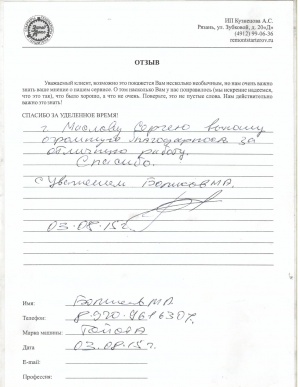 ИП Кузнецов А.С.
Рязань, ул. Зубковой, д. 20«Д»
(4912) 99-06-36
remontstarterov.ru
ОТЗЫВ
Уважаемый клиент, возможно это покажется Вам несколько необычным, но нам очень важно
знать ваше мнение о нашем сервисе. О том насколько Вам у нас понравилось (мы искренне надеемся,
что это так), что было хорошо, а что не очень. Поверьте, это не пустые слова. Нам действительно
важно это знать!
СПАСИБО ЗА УДЕЛЕННОЕ ВРЕМЯ!
г. Маслову Сергею выношу
огромную благодарность за
отличную работу.
Спасибо.
С Уважением
03.08.15г.
Имя:
Телефон: 8-920-9616307
Марка машины: Тойота
Дата 03.08.15г.
E-mail:
Профессия: